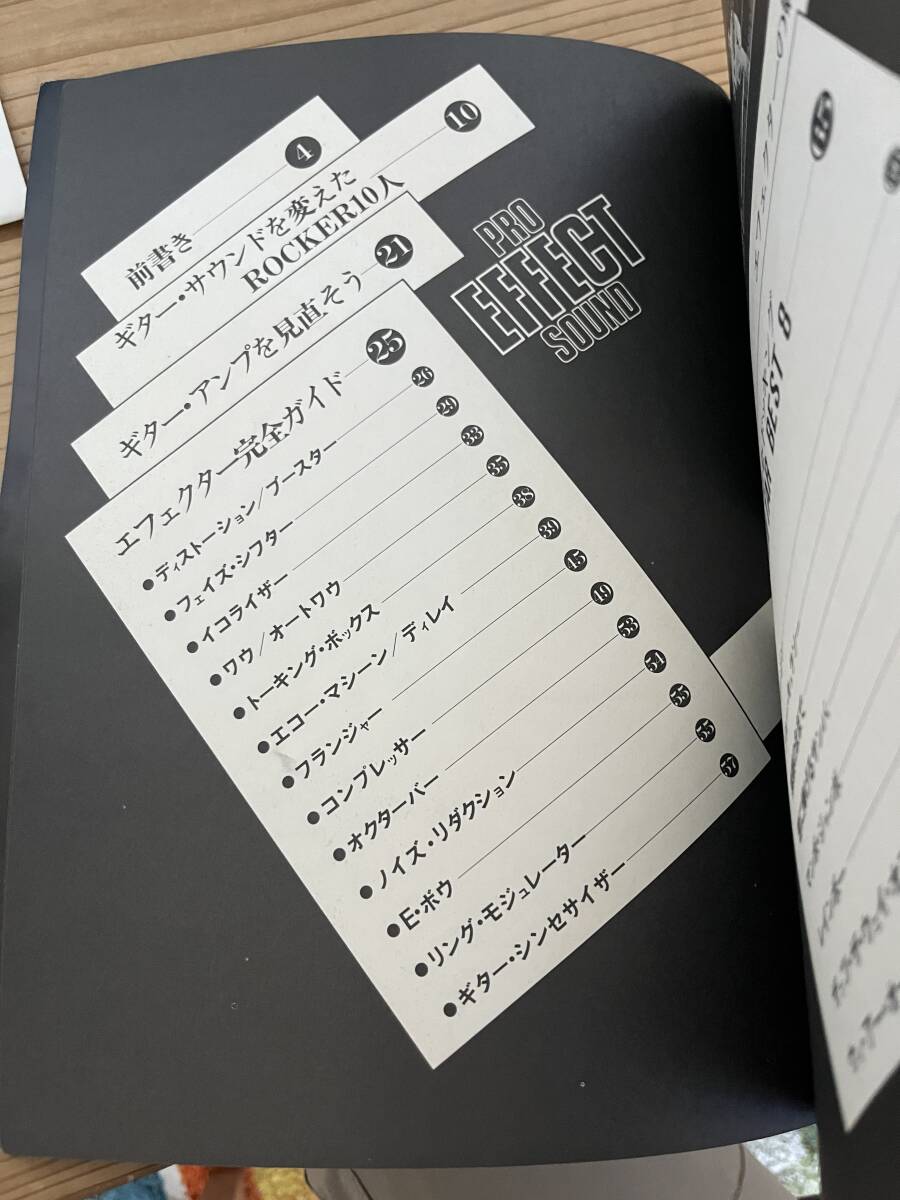 前書き 4
ギター・サウンドを変えた
ROCKER10人 10
ギター・アンプを見直そう 21
エフェクター完全ガイド 25
●ディストーション/ブースター 26
●フェイズ・シフター 29
●イコライザー 33
●ワウ/オートワウ 35
●トーキング・ボックス 38
●エコー・マシーン/ディレイ 39
●フランジャー 45
●コンプレッサー 49
●オクターバー 53
●ノイズ・リダクション 54
●E・ボウ 55
●リング・モジュレーター 55
●ギター・シンセサイザー 57
PRO
EFFECT
SOUND
BEST 8